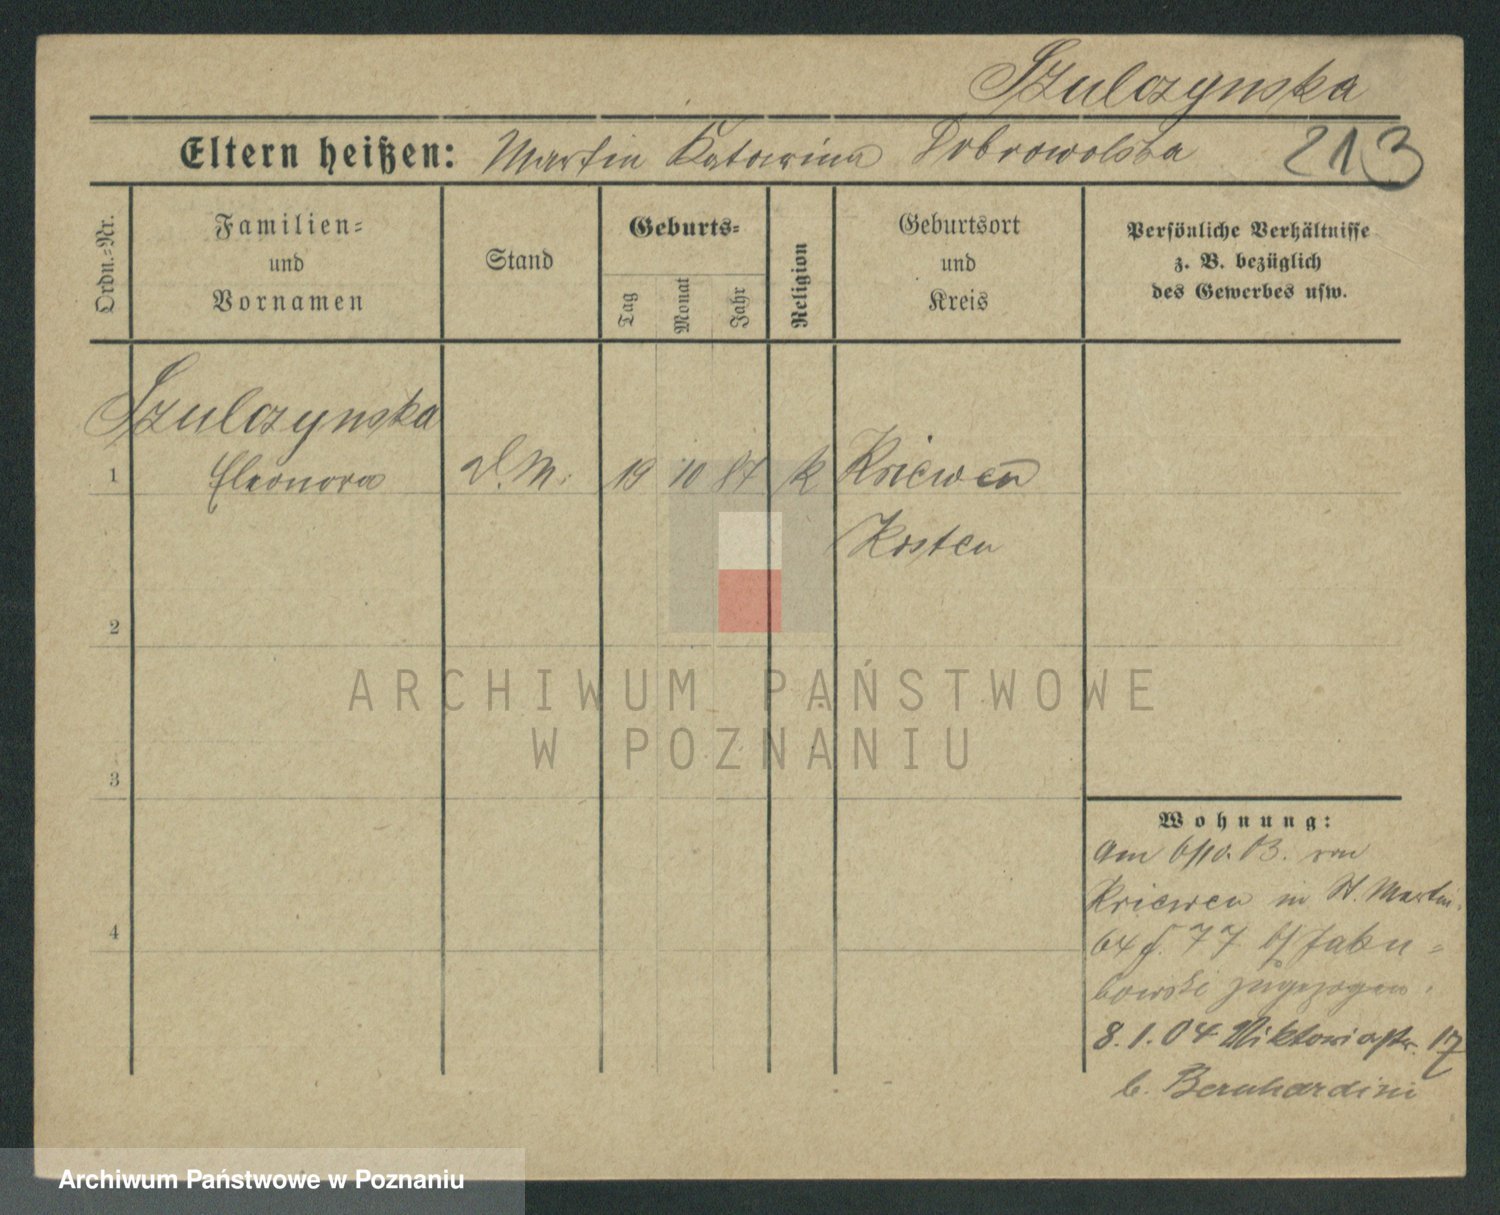 Szulczynska
Eltern heißen: Martin Katarina Dobrowolska 213
Ordn.-Nr.
Familien-
und
Vornamen
Stand
Geburts-
Tag
Monat
Jahr
Religion
Geburtsort
und
Kreis
Persönliche Verhältnisse
z. B. bezüglich
des Gewerbes usw.
Szulczynska
1 Eleonora D.M. 19 10 84 k Kriewen
Kosten
2
3
4
Wohnung:
Am 6/10. 03. von
Kriewen in St. Martin
64 77 b/ Jaku-
bowski zugezogen.
8.1.04 Viktoriastr. 17
b. Bernhardini
ARCHIWUM PAŃSTWOWE
W POZNANIU
Archiwum Państwowe w Poznaniu